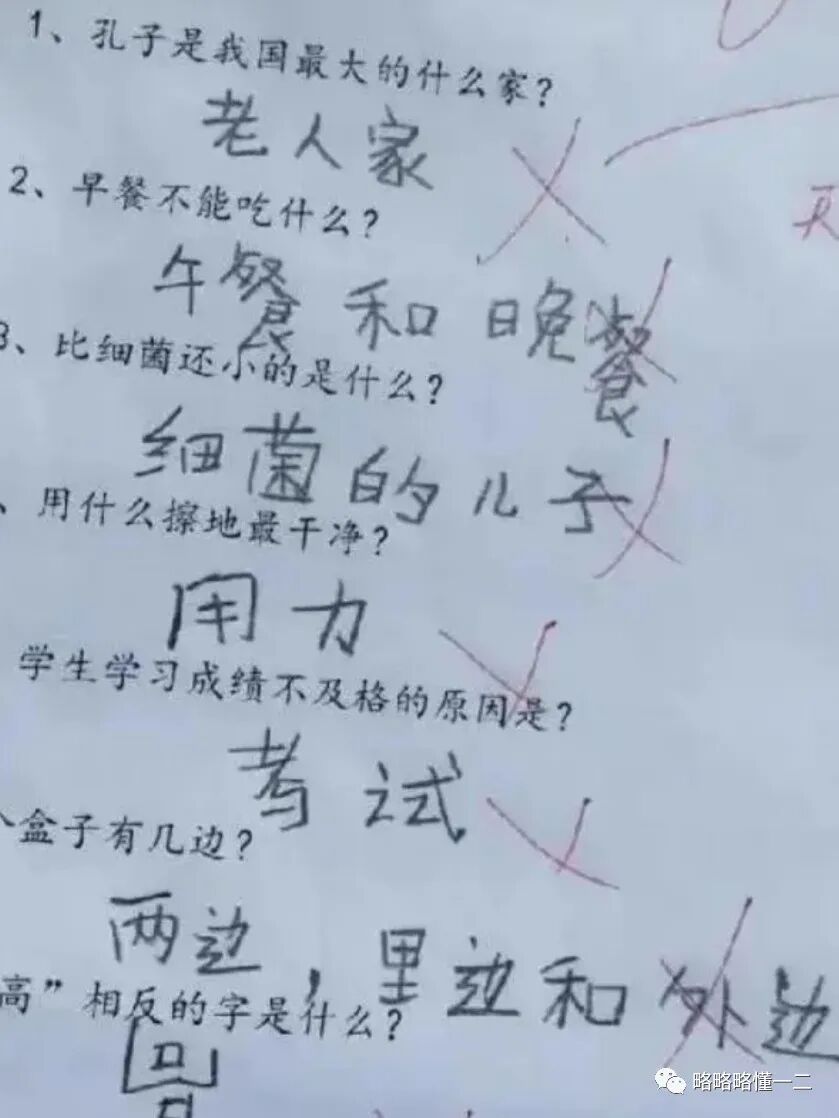 1、孔子是我国最大的什么家？
老人家
2、早餐不能吃什么？
午餐和晚餐
3、比细菌还小的是什么？
细菌的儿子
、用什么擦地最干净？
用力
学生学习成绩不及格的原因是？
考试
盒子有几边？
两边，里边和外边
高”相反的字是什么？
略略略懂一二